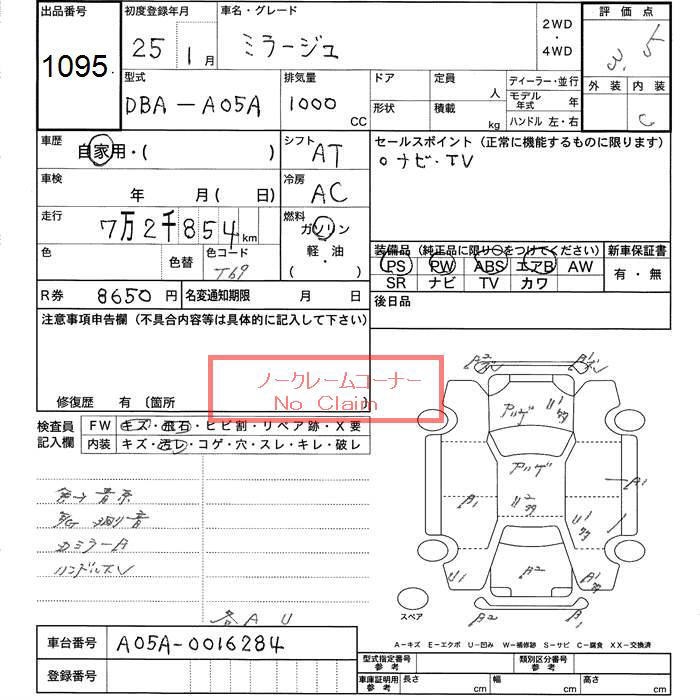 出品番号 初度登録年月 車名・グレード 2WD・4WD 評価点
1095 25 1月 ミラージュ 3.5
型式 排気量 ドア 定員 人 ディーラー・並行 外装 内装
DBA-A05A 1000 CC 形状 積載 kg モデル年式 年 C
ハンドル 左・右
車歴 自家用・( ) シフト AT セールスポイント(正常に機能するものに限ります)
○ナビ・TV
車検 年 月( 日) 冷房 AC
走行 7万2千854km 燃料 ガソリン 軽・油 ( )
色 色替 色コード T69
装備品(純正品に限り○をつけてください) 新車保証書
PS PW ABS エアB AW 有・無
SR ナビ TV カワ
R券 8650円 名変通知期限 月 日 後日品
注意事項申告欄(不具合内容等は具体的に記入して下さい)
ノークレームコーナー
No Claim
修復歴 有 〔箇所
検査員記入欄 FW キズ・飛石・ヒビ割・リペア跡・X要
内装 キズ・汚レ・コゲ・穴・スレ・キレ・破レ
A2 A1
U1
アバゲ
アバゲ
A1 U2 A1
U1
U1 A2 A1
A2 A1
Dミラー A
ハンドルスレ
各AU
スペア
A-キズ E-エクボ U-凹み W-補修跡 S-サビ C-腐食 XX-交換済
車台番号 A05A-0016284
登録番号
型式指定番号参考 類別区分番号参考
車庫証明用参考 長さ cm 幅 cm 高さ cm